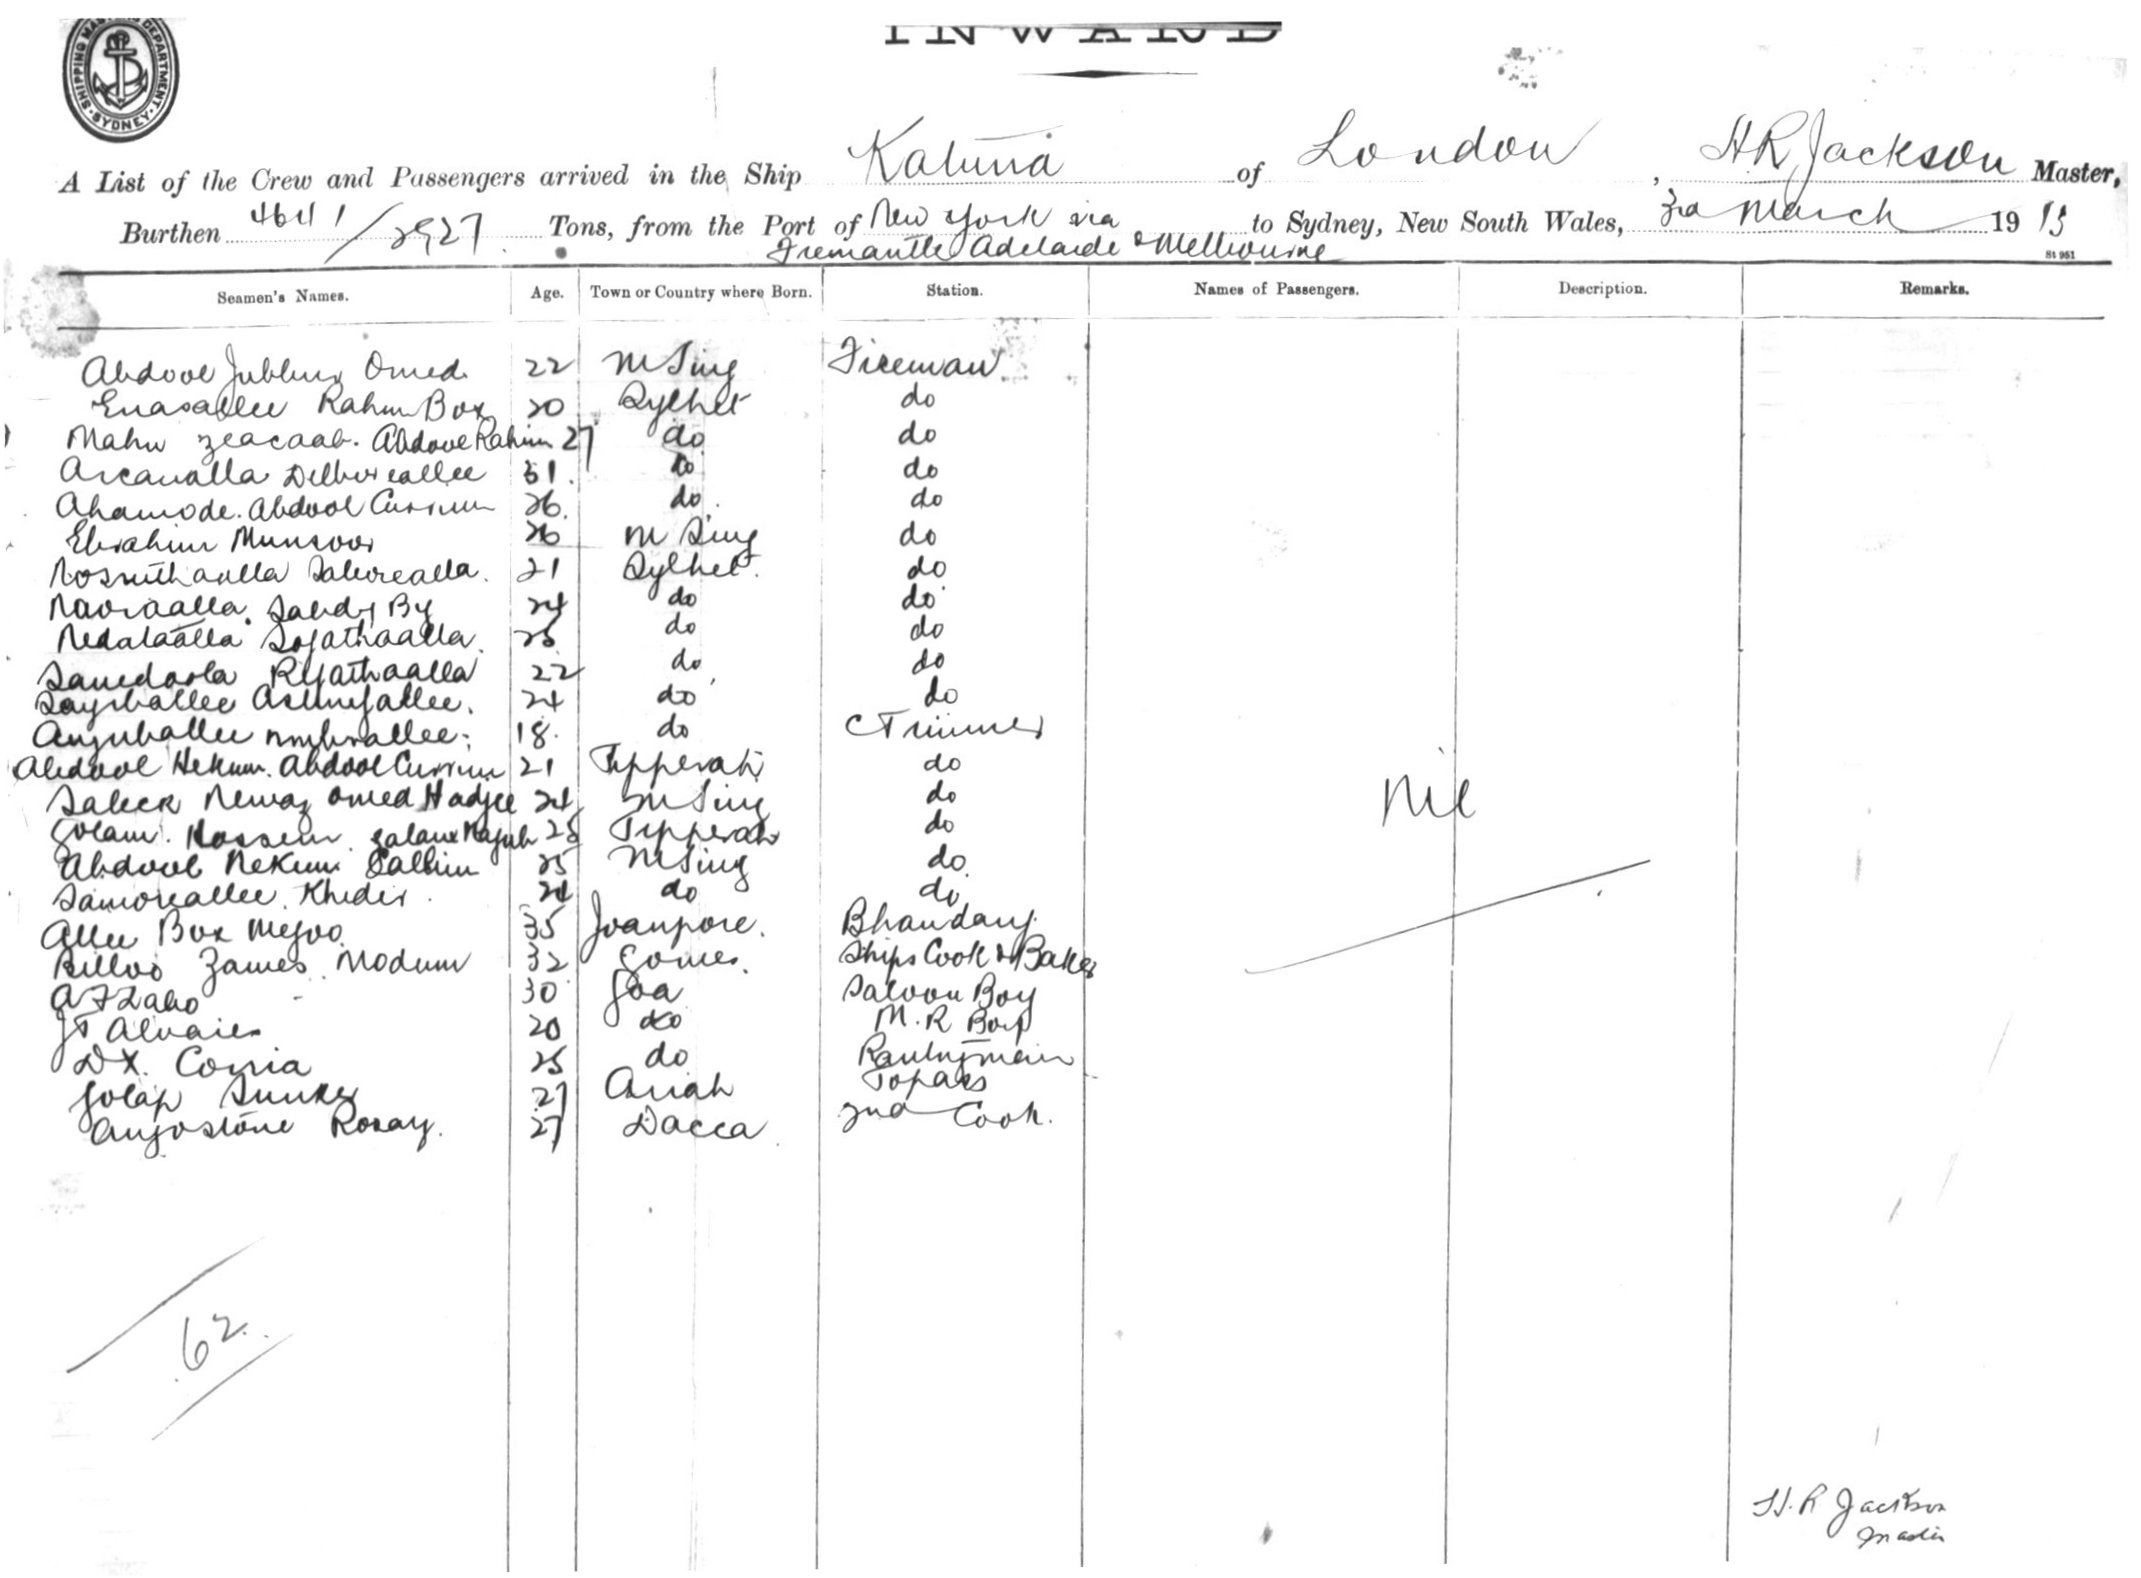 SHIPPING MASTER'S DEPARTMENT. SYDNEY.
INWARD
A List of the Crew and Passengers arrived in the Ship Katuna of London, H R Jackson Master,
Burthen 4641/2927 Tons, from the Port of New York via Fremantle Adelaide & Melbourne to Sydney, New South Wales, 3rd March 1915
St 951
Seamen's Names. Age. Town or Country where Born. Station. Names of Passengers. Description. Remarks.
Abdool Jubbur Omed 22 M Sing Fireman
Enasallee Rahim Box 20 Sylhet do
Mahu Abdool Rahim 27 do do
Arcanalla 31 do do
Ahamode. Abdool Currim 26. do. do
Ebrahim Munsoor 26 M Sing do
21 Sylhet. do
24 do do
25 do do
22 do do
24 do do
18. do Trimmer
Abdool Hekum. Abdool Currim 21 Tipperah do
Saleek Newaz Omed Hadjee 24 M Sing do
Golam. Hossein. 25 Tipperah do
Abdool Nekum Salbim 25 M Sing do.
Samoreallee. Kheder. 24 do do
Allee Box Mejoo 35 Joanpore. Bhandary
Billoo James Modum 32 Gomes. Ships Cook & Baker
A F Labo 30 Goa Saloon Boy
J F Alvares 20 do M.R Boy
D X. Corria 25 do Pantryman
Golap 27 Arrah Topass
Angostone Rosary. 27 Dacca 2nd Cook.
Nil
62.
H. R Jackson
Master